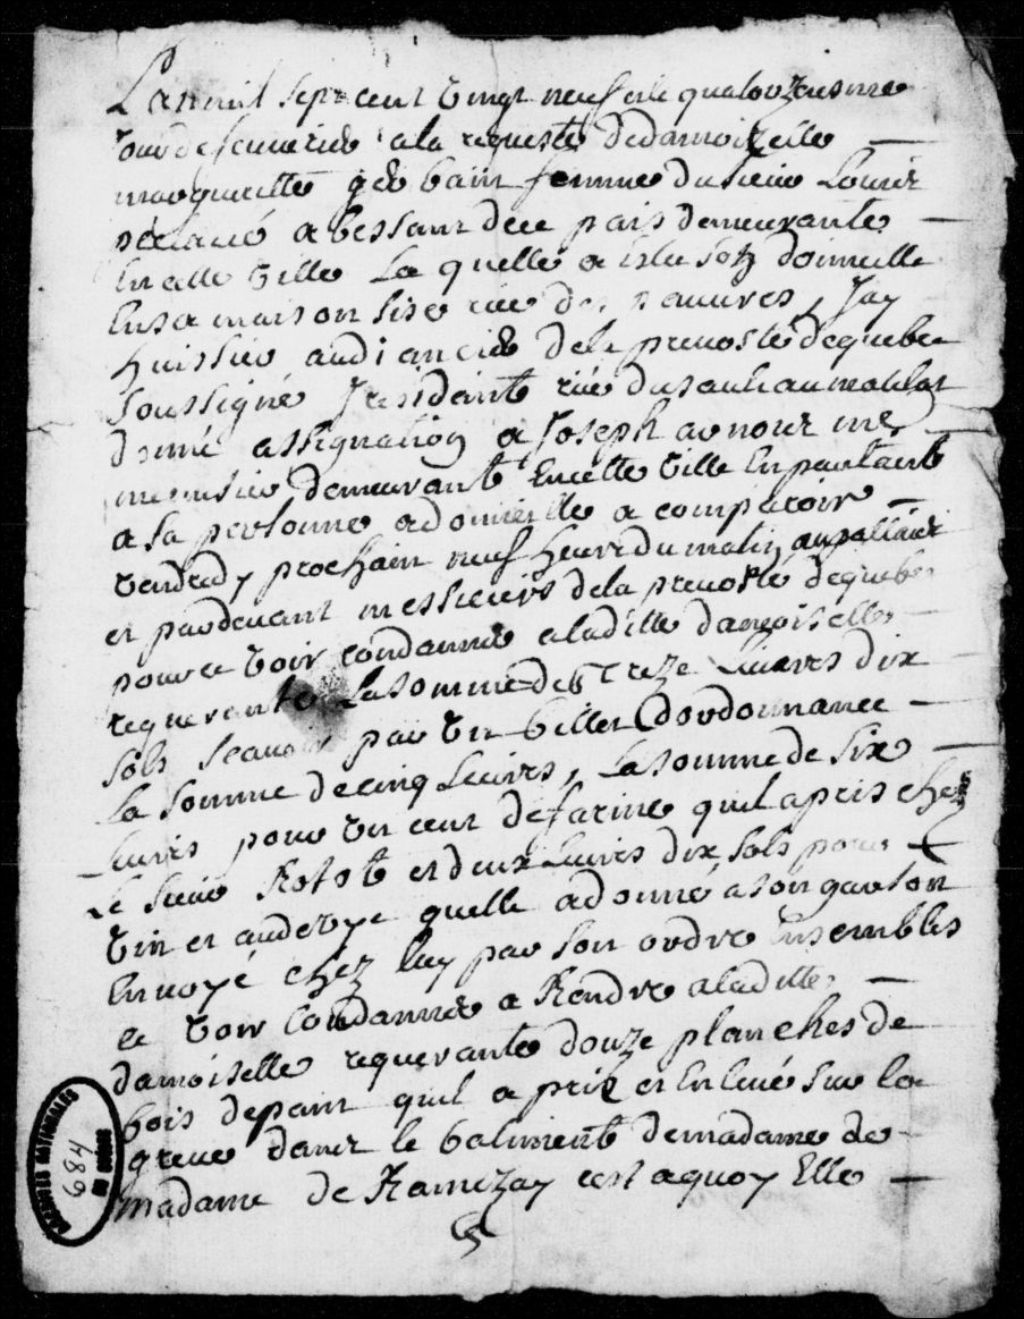 L'an mil sept cent vingt neuf et le quatorziesme
Jour de feuvrier a la requeste de damoiselle
margueritte femme du sieur Louis
absant de ce païs demeurante
en cette ville Laquelle a eslu son domicille
en sa maison sise rüe des pauvres, Jay
huissier audiancier de la prevosté de quebec
soussigné Residant rüe du sault au matelot
donné assignation a Joseph me
menusier demeurant en cette ville en parlant
a sa personne a domicille a comparoir
vendredy prochain neuf heure du matin au pallais
et pardevant messieurs de la prevosté de quebec
pour ce voir condamné a la ditte damoiselle
requerante La somme de Treze Livres dix
sols scavoir par un billet d'ordonnance
la somme de cinq Livres, La somme de six
Livres pour un cent de farine quil a pris chez
Le sieur Rotot et deux Livres dix sols pour
vin et audevye quelle a donné a son garson
envoyé chez luy par son ordre ensembles
ce voir condamner a Rendre a la ditte
damoiselle requerante douze planches de
bois de pain quil a pris et enlevé sur la
greve dans le batiment de madame de
madame de Ramezay cest a quoy Elle
ARCHIVES NATIONALES
684
DU QUÉBEC